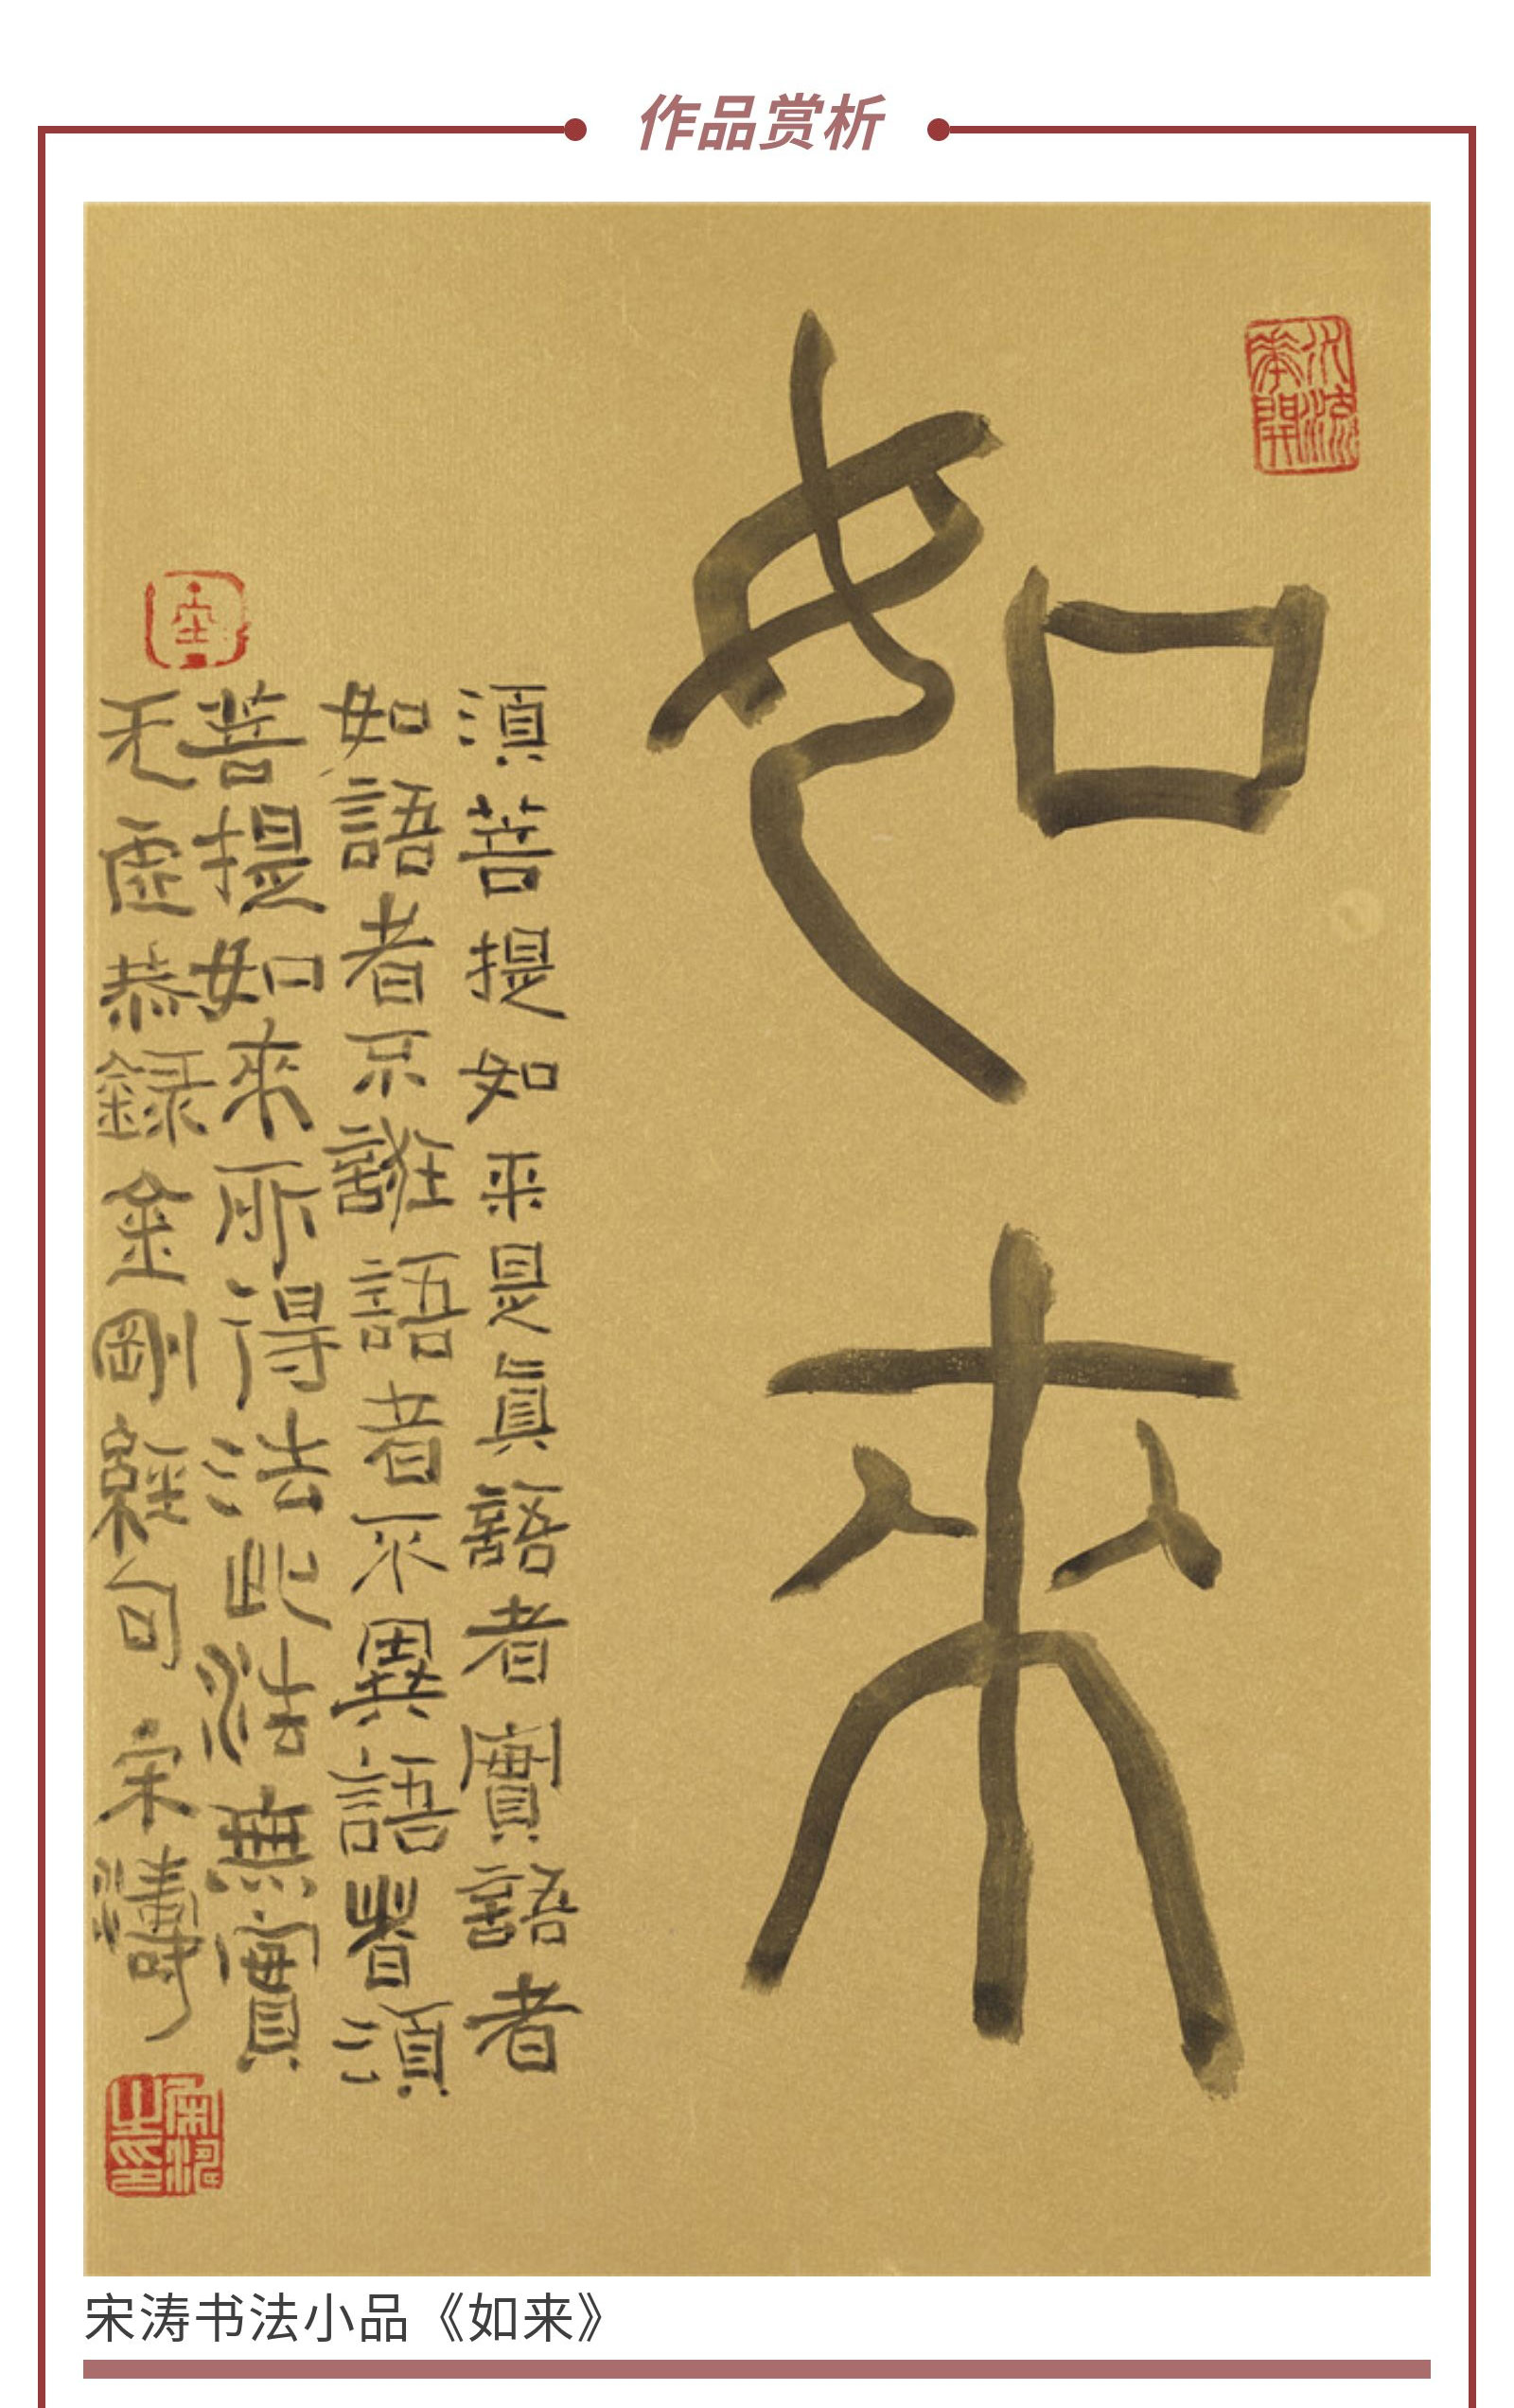 作品赏析
如來
須菩提如来是真語者實語者
如語者不誑語者不異語者須
菩提如來所得法此法無實
无虚恭録金剛經句宋濤
水流
花開
宋濤
之印
宋涛书法小品《如来》